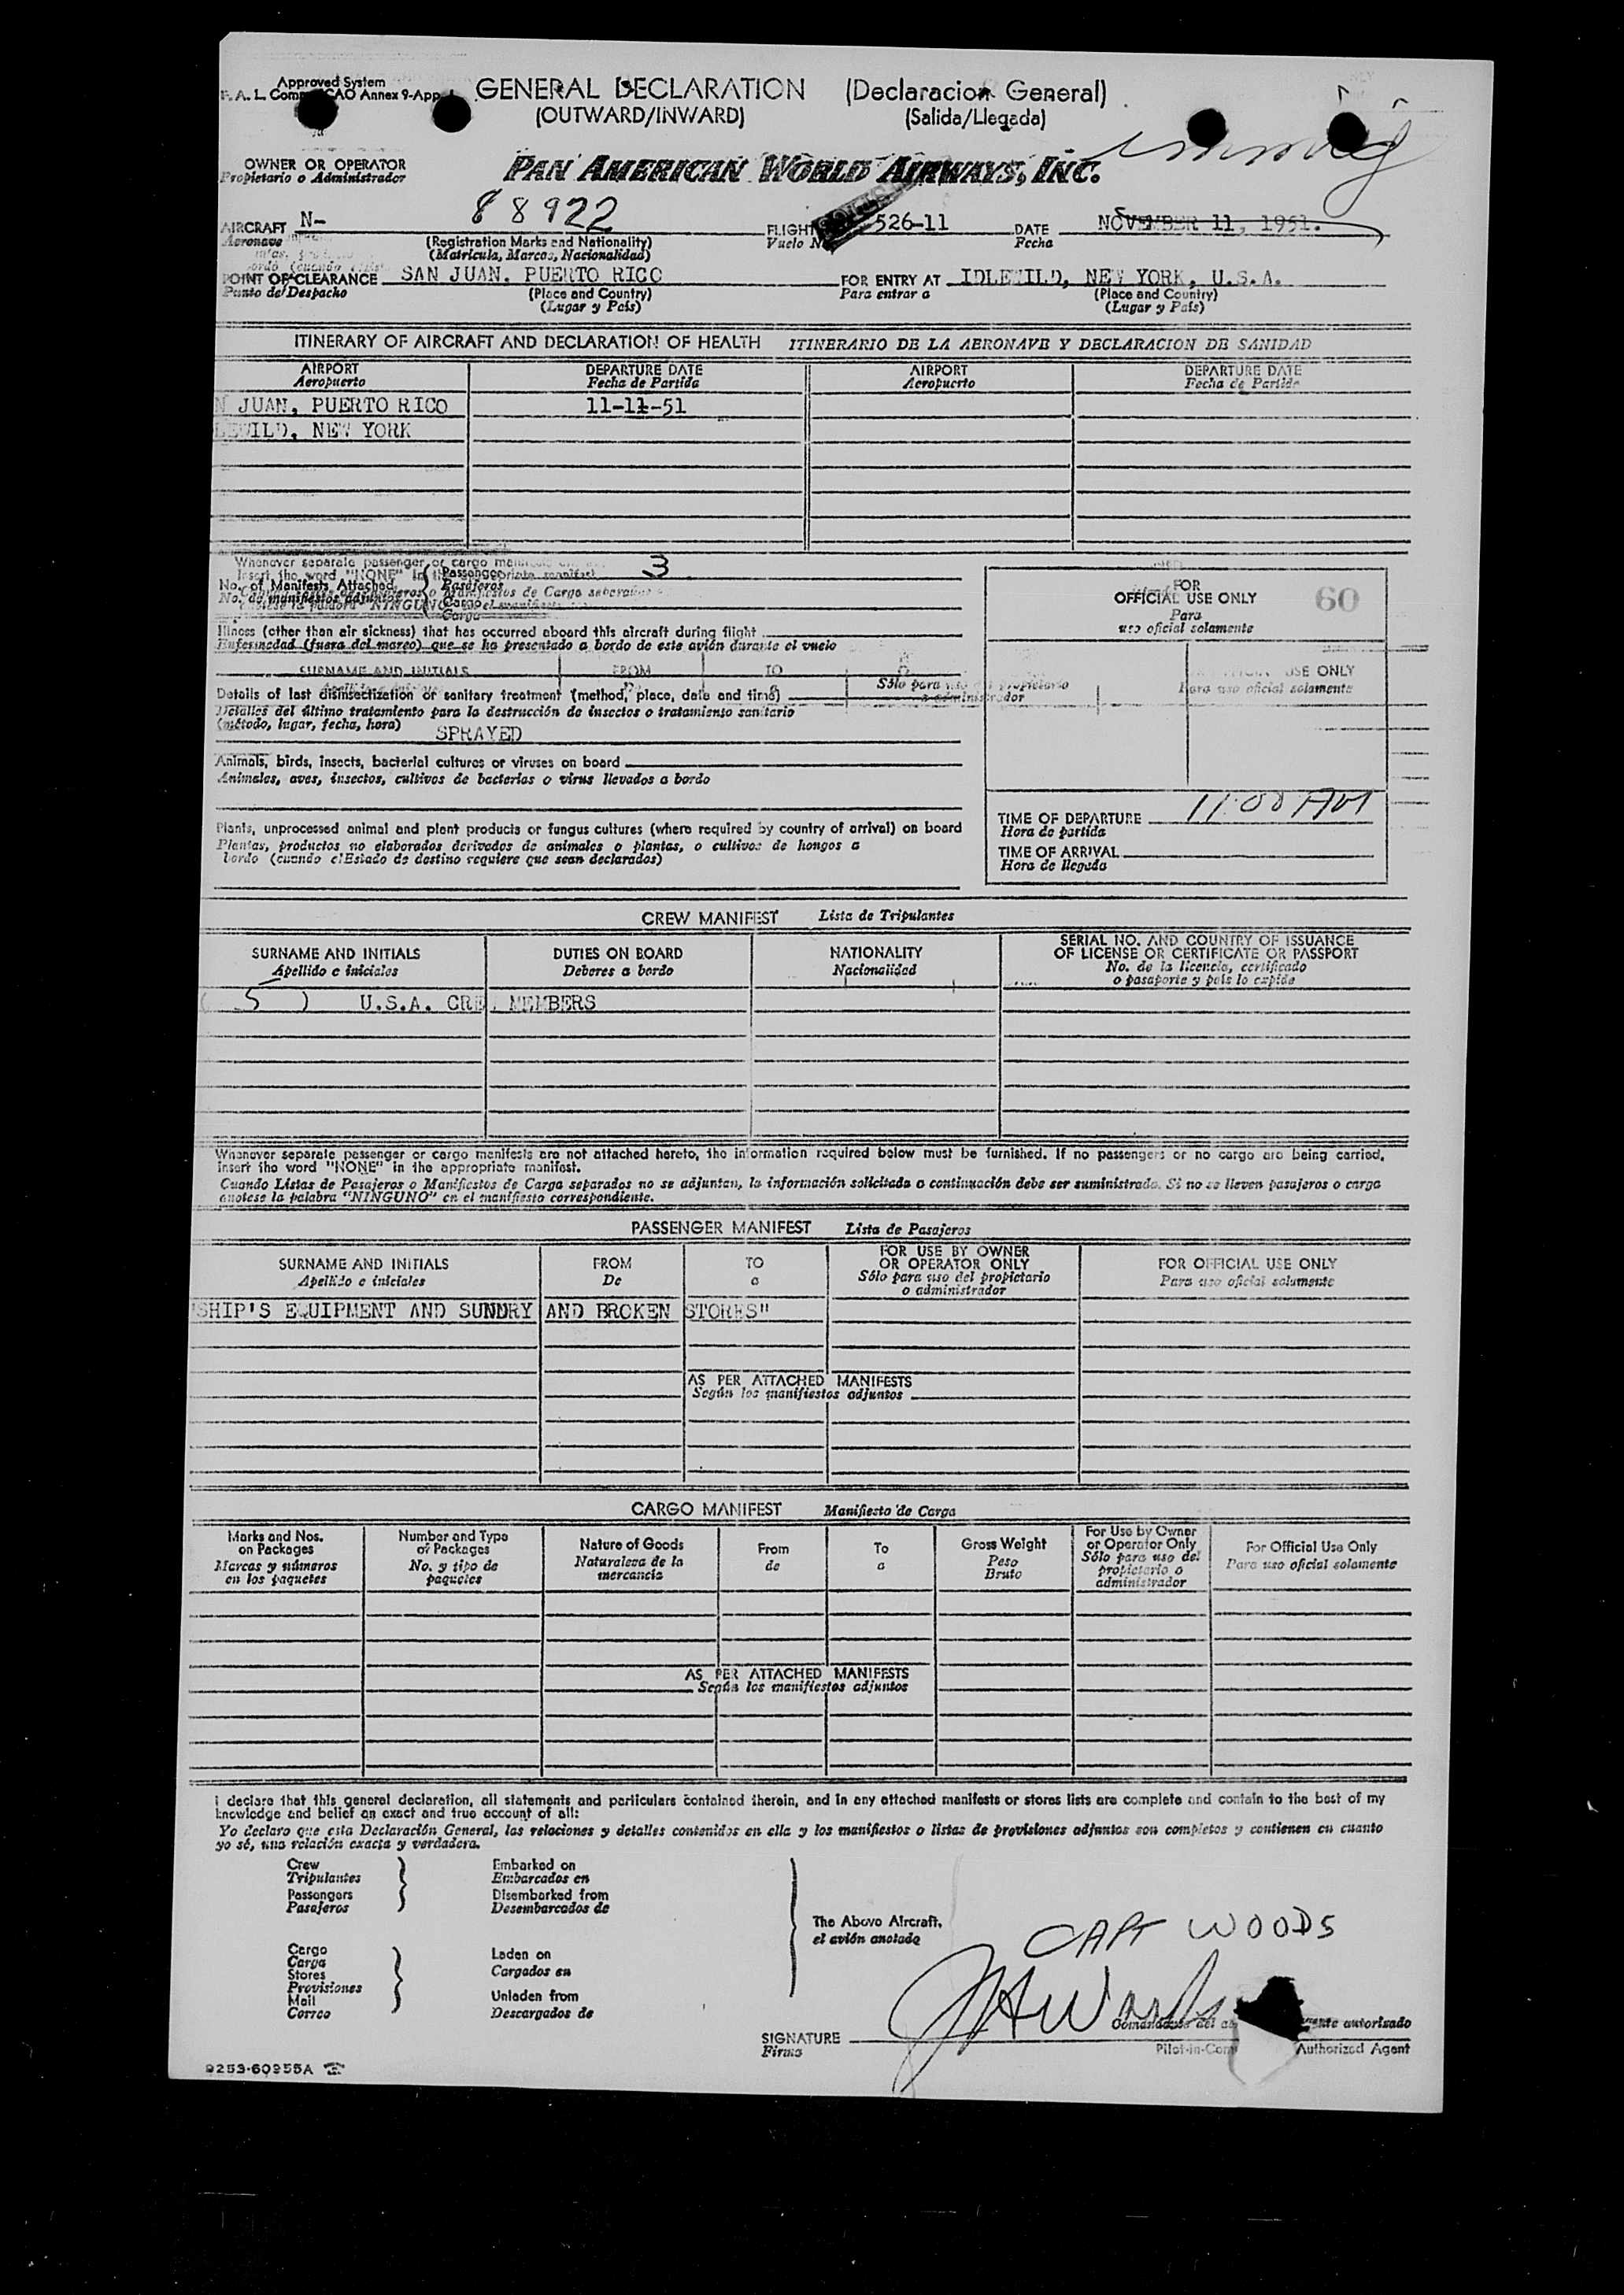 Approved System
GENERAL DECLARATION (Declaracion General)
(OUTWARD/INWARD) (Salida/Llegada)
OWNER OR OPERATOR PAN AMERICAN WORLD AIRWAYS, INC.
Propietario o Administrador
AIRCRAFT N- 88922 FLIGHT 526-11 DATE NOVEMBER 11, 1951.
Aeronave (Registration Marks and Nationality) Vuelo Fecha
(Matrícula, Marcas, Nacionalidad)
POINT OF CLEARANCE SAN JUAN. PUERTO RICO FOR ENTRY AT IDLEWILD, NEW YORK, U.S.A.
Punto de Despacho (Place and Country) Para entrar a (Place and Country)
(Lugar y País) (Lugar y País)
ITINERARY OF AIRCRAFT AND DECLARATION OF HEALTH ITINERARIO DE LA AERONAVE Y DECLARACION DE SANIDAD
AIRPORT DEPARTURE DATE AIRPORT DEPARTURE DATE
Aeropuerto Fecha de Partida Aeropuerto Fecha de Partida
N JUAN, PUERTO RICO 11-11-51
LEWILD, NEW YORK
Whenever separate passenger or cargo
3
No. of Manifests Attached Passenger
No. de manifiestos adjuntos Pasajeros
Cargo
Carga
FOR
OFFICIAL USE ONLY 60
Para
uso oficial solamente
Illness (other than air sickness) that has occurred aboard this aircraft during flight
Enfermedad (fuera del mareo) que se ha presentado a bordo de este avión durante el vuelo
SURNAME AND INITIALS FROM TO USE ONLY
Para uso oficial solamente
Details of last disinsectization or sanitary treatment (method, place, date and time)
Detalles del último tratamiento para la destrucción de insectos o tratamiento sanitario
(método, lugar, fecha, hora) SPRAYED
Animals, birds, insects, bacterial cultures or viruses on board
Animales, aves, insectos, cultivos de bacterias o virus llevados a bordo
TIME OF DEPARTURE 11:00 AM
Hora de partida
Plants, unprocessed animal and plant products or fungus cultures (where required by country of arrival) on board
Plantas, productos no elaborados derivados de animales o plantas, o cultivos de hongos a
bordo (cuando el Estado de destino requiere que sean declarados)
TIME OF ARRIVAL
Hora de llegada
CREW MANIFEST Lista de Tripulantes
SURNAME AND INITIALS DUTIES ON BOARD NATIONALITY SERIAL NO. AND COUNTRY OF ISSUANCE
OF LICENSE OR CERTIFICATE OR PASSPORT
Apellido e iniciales Deberes a bordo Nacionalidad No. de la licencia, certificado
o pasaporte y país lo expide
( 5 ) U.S.A. CREW MEMBERS
Whenever separate passenger or cargo manifests are not attached hereto, the information required below must be furnished. If no passengers or no cargo are being carried,
insert the word "NONE" in the appropriate manifest.
Cuando Listas de Pasajeros o Manifiestos de Carga separados no se adjuntan, la información solicitada a continuación debe ser suministrada. Si no se lleven pasajeros o carga
anótese la palabra "NINGUNO" en el manifiesto correspondiente.
PASSENGER MANIFEST Lista de Pasajeros
SURNAME AND INITIALS FROM TO FOR USE BY OWNER
OR OPERATOR ONLY FOR OFFICIAL USE ONLY
Apellido e iniciales De a Sólo para uso del propietario
o administrador Para uso oficial solamente
"SHIP'S EQUIPMENT AND SUNDRY AND BROKEN STORES"
AS PER ATTACHED MANIFESTS
Según los manifiestos adjuntos
CARGO MANIFEST Manifiesto de Carga
Marks and Nos. on Packages Number and Type of Packages Nature of Goods From To Gross Weight For Use by Owner or Operator Only For Official Use Only
Marcas y números en los paquetes No. y tipo de paquetes Naturaleza de la mercancía de a Peso Bruto Sólo para uso del propietario o administrador Para uso oficial solamente
AS PER ATTACHED MANIFESTS
Según los manifiestos adjuntos
I declare that this general declaration, all statements and particulars contained therein, and in any attached manifests or stores lists are complete and contain to the best of my
knowledge and belief an exact and true account of all:
Yo declaro que esta Declaración General, las relaciones y detalles contenidos en ella y los manifiestos o listas de provisiones adjuntos son completos y contienen en cuanto
yo sé, una relación exacta y verdadera.
Crew Embarked on
Tripulantes Embarcados en
Passengers Disembarked from
Pasajeros Desembarcados de
The Above Aircraft,
el avión anotado
CAPT WOODS
Cargo Laden on
Carga Cargados en
Stores
Provisiones
Mail Unladen from
Correo Descargados de
SIGNATURE JHWoods autorizado
Firma Pilot-in-Com Authorized Agent
9253-60955A